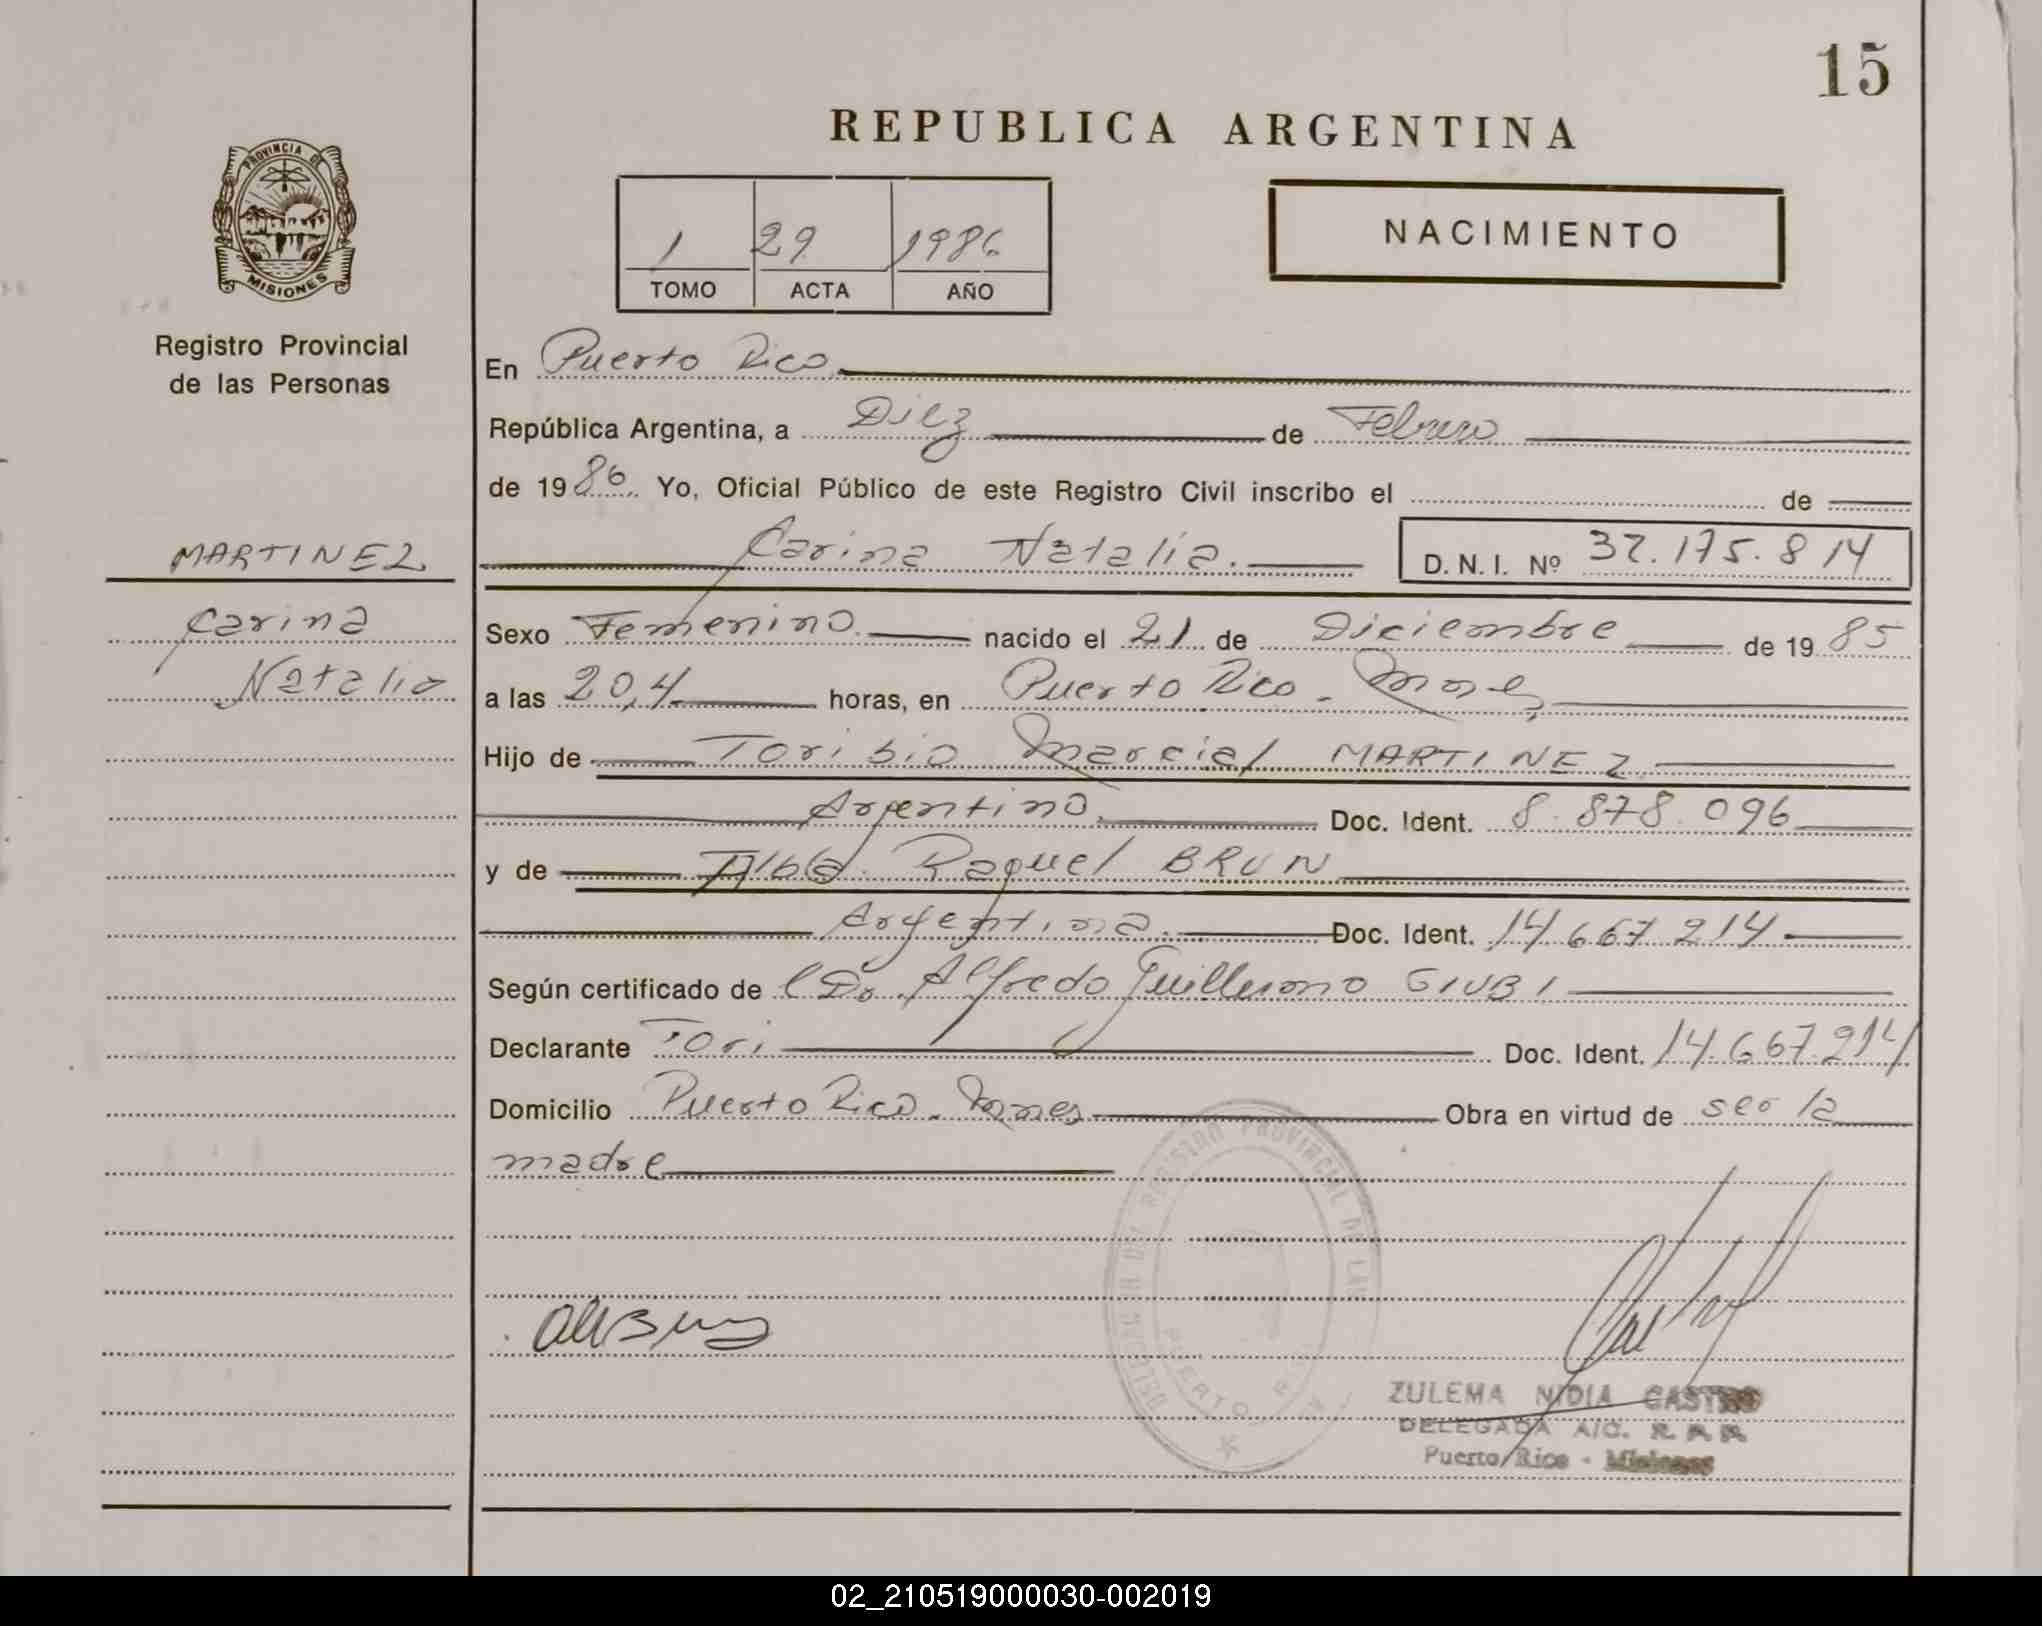 15
REPUBLICA ARGENTINA
PROVINCIA DE
MISIONES
1 29 1986
TOMO ACTA AÑO
NACIMIENTO
Registro Provincial
de las Personas
En Puerto Rico
República Argentina, a Diez de Febrero
de 1986 Yo, Oficial Público de este Registro Civil inscribo el de
MARTINEZ
Carina Natalia. D. N. I. Nº 32.175.814
Carina
Natalia
Sexo Femenino nacido el 21 de Diciembre de 1985
a las 20,4 horas, en Puerto Rico - Mnes
Hijo de Toribio Marcial MARTINEZ
Argentino. Doc. Ident. 8.878.096
y de Alba Raquel BRUN
Argentina. Doc. Ident. 14.667.214
Según certificado de Dr. Alfredo Guillermo GIUBI
Declarante Tori Doc. Ident. 14.667.214
Domicilio Puerto Rico - Mnes Obra en virtud de ser la
madre
DELEGACION DEL REGISTRO PROVINCIAL DE LAS
PUERTO RICO
ZULEMA NIDIA CASTRO
DELEGADA A/C. R. P. P.
Puerto Rico - Misiones
02_210519000030-002019